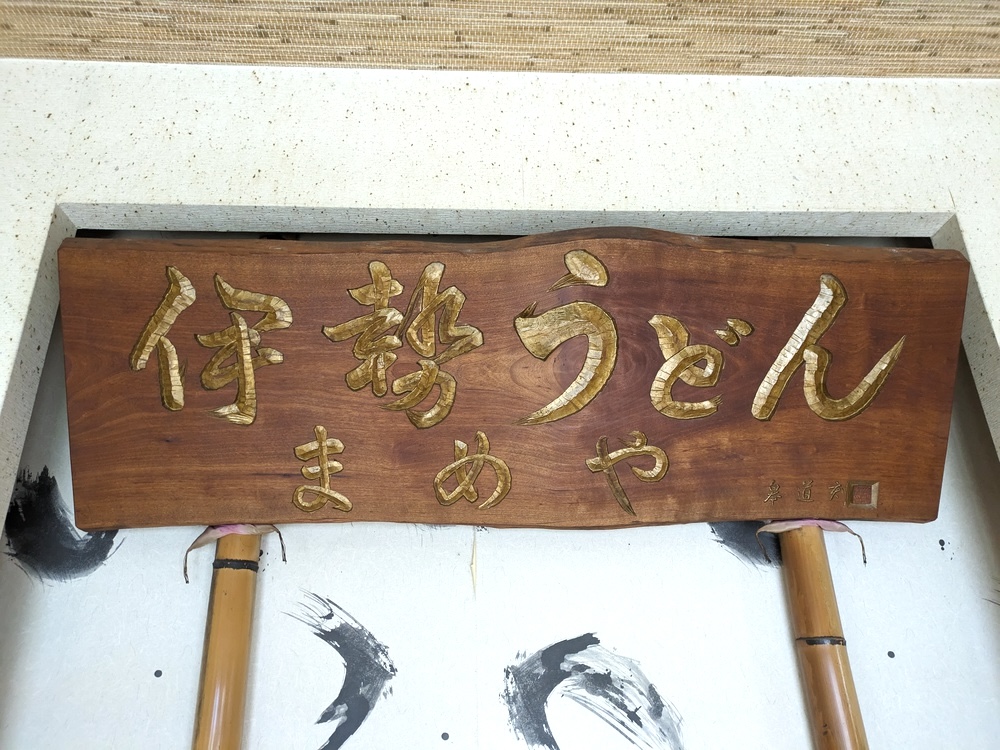 伊勢うどん
まめや